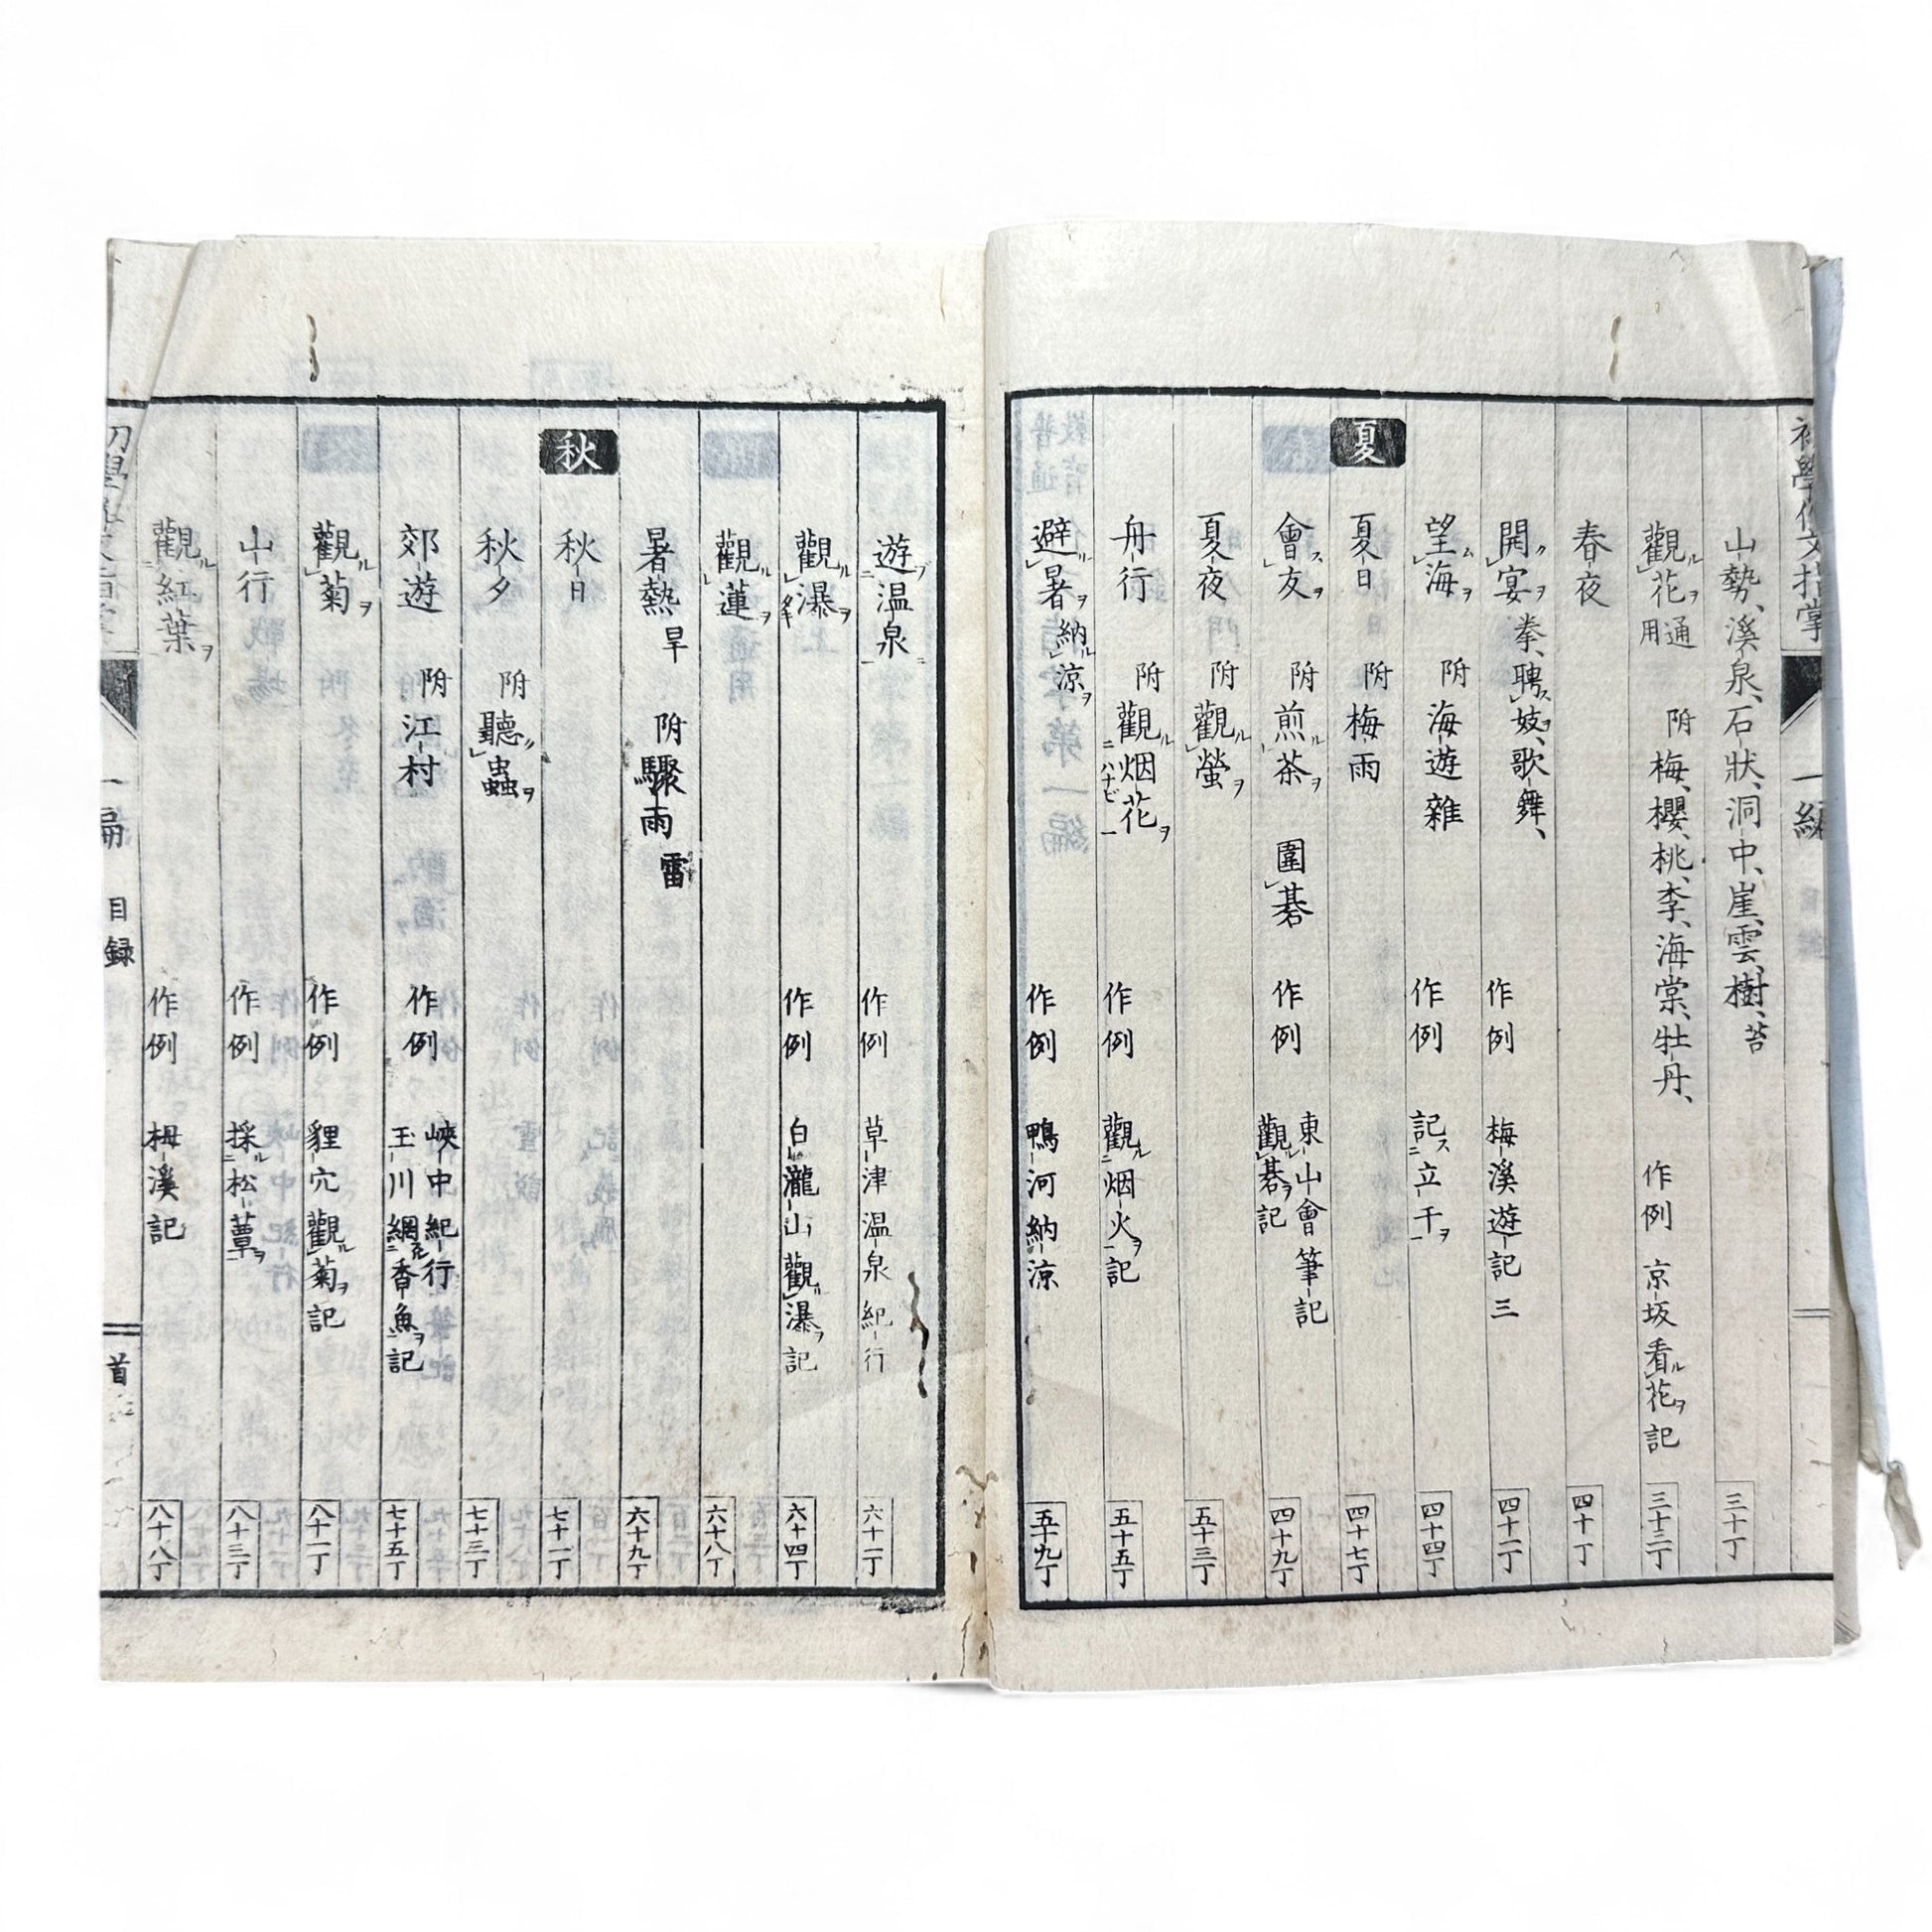 初學作文指掌 一編
山勢、溪泉、石狀、洞中、崖、雲、樹、苔 三十丁
觀ル花ヲ 通用 附 梅、櫻、桃、李、海棠、牡丹、 作例 京坂看ル花ヲ記 三十三丁
春夜 四十丁
開ク宴ヲ 拳、聘ス妓ヲ、歌舞、 作例 梅溪遊記三 四十一丁
望ム海ヲ 附 海遊雜 作例 記ス立干ヲ 四十四丁
夏
夏日 附 梅雨 四十七丁
會ス友ヲ 附 煎ル茶ヲ 圍碁 作例 東山會筆記 觀ル碁ヲ記 四十九丁
夏夜 附 觀ル螢ヲ 五十三丁
舟行 附 觀ル烟花ヲ ハナビ 作例 觀ル烟火ヲ記 五十五丁
避ク暑ヲ 納ル涼ヲ 作例 鴨河納涼 五十九丁
遊ブ温泉ニ 作例 草津温泉紀行 六十一丁
觀ル瀑ヲ 作例 白瀧山觀ル瀑ヲ記 六十四丁
觀ル蓮ヲ 六十八丁
暑熱 旱 附 驟雨 雷 六十九丁
秋
秋日 七十一丁
秋夕 附 聽ク蟲ヲ 七十三丁
郊遊 附 江村 作例 峽中紀行 玉川網香魚ヲ記 七十五丁
觀ル菊ヲ 作例 貍穴觀ル菊ヲ記 八十一丁
山行 作例 採ル松蕈ヲ 八十三丁
觀ル紅葉ヲ 作例 栂溪記 八十八丁
目録 首